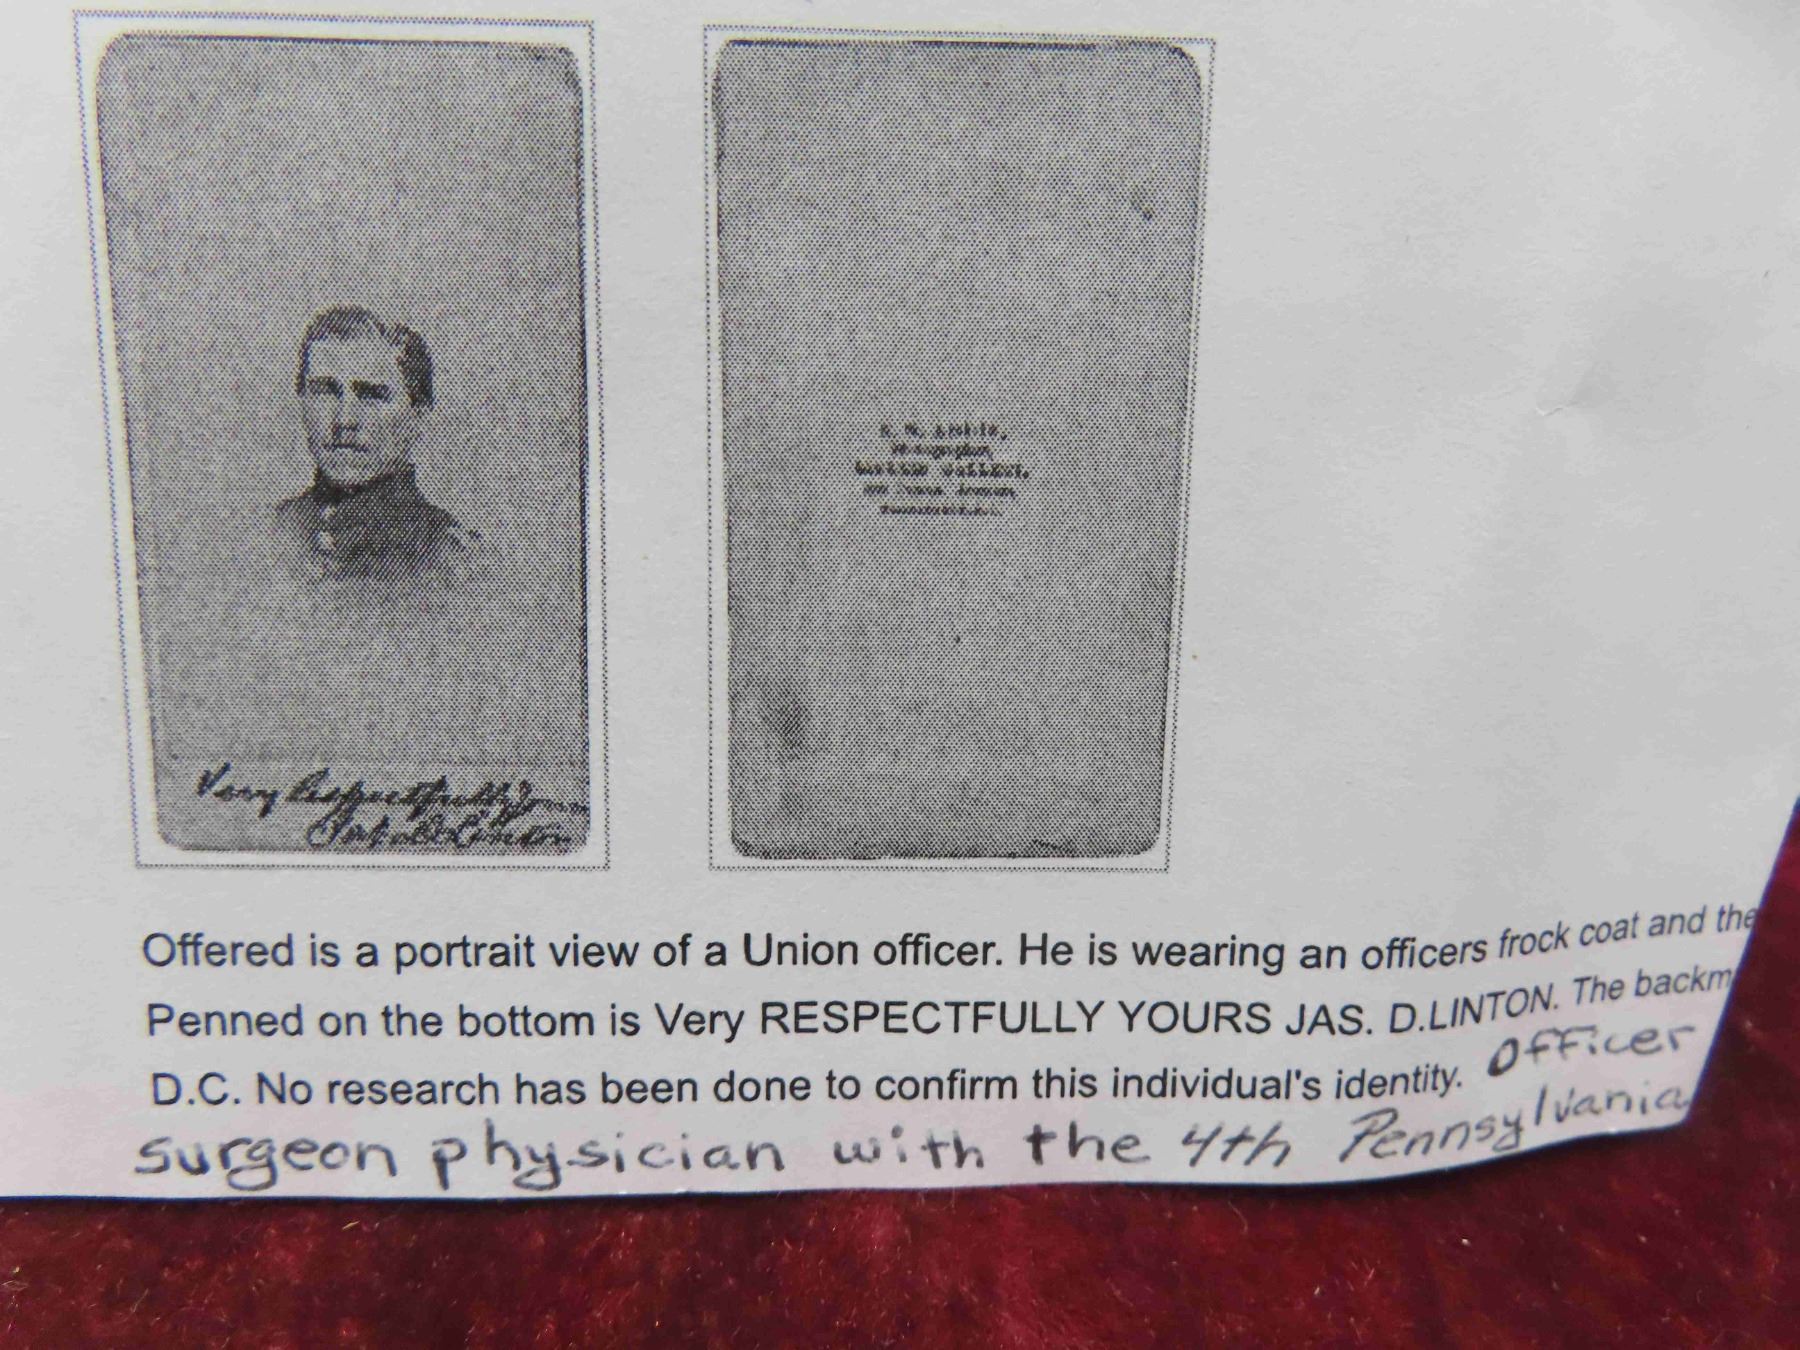 Very Respectfully Yours
Jas. D. Linton
Photographer,
Offered is a portrait view of a Union officer. He is wearing an officers frock coat and the
Penned on the bottom is Very RESPECTFULLY YOURS JAS. D.LINTON. The backm
D.C. No research has been done to confirm this individual's identity. Officer
surgeon physician with the 4th Pennsylvania